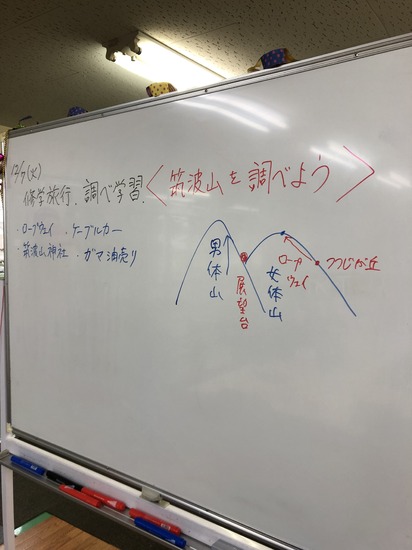 12/7(火)
修学旅行、調べ学習、
〈筑波山を調べよう〉
・ロープウェイ ・ケーブルカー
・筑波山神社 ・ガマ油売り
男体山
展望台
女体山
ロープウェイ
つつじが丘